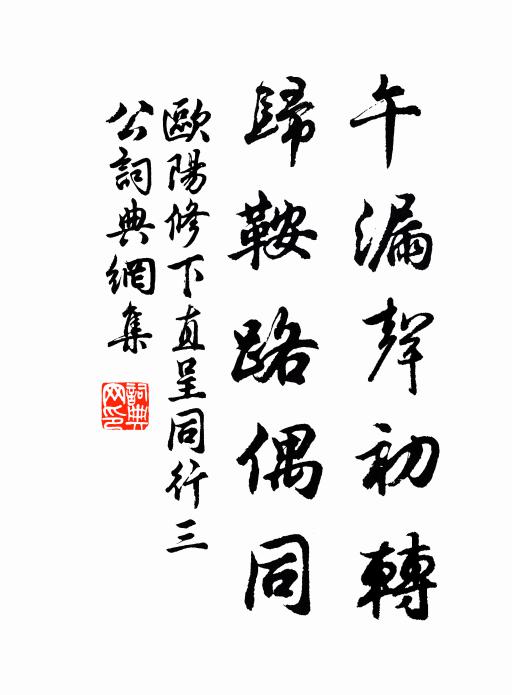 午漏聲初轉
歸鞍路偶同
歐陽修下直呈同行三
公詞典網集
詞典
网印